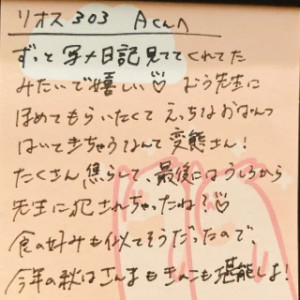 リオス303 Aくんへ
ずっと写メ日記見ててくれてた
みたいで嬉しい♡ なう先生に
ほめてもらいたくてえっちなおぱんつ
はいてきちゃうなんて変態さん!
たくさん焦らして、最後にはうしろから
先生に犯されちゃったね?♡
食の好みも似てそうだったので、
今年の秋はさんまもきのこも堪能しよ!